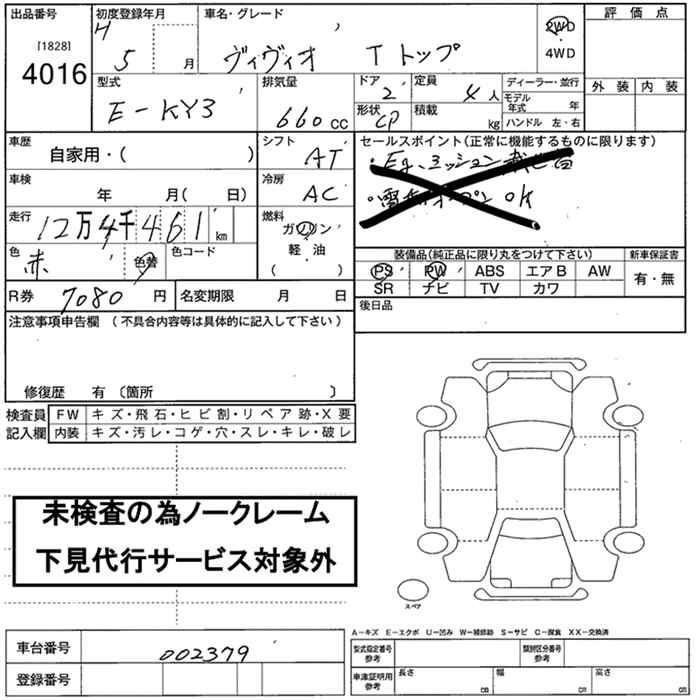 出品番号 初度登録年月 車名・グレード 2WD 評価点
[1828] H 5 月 ヴィヴィオ Tトップ ・ 4WD
4016
型式 排気量 ドア 定員 ディーラー・並行 外装 内装
E-KY3 660 CC 2 4 人 モデル年式 年
形状 CP 積載 kg ハンドル 左・右
車歴 シフト セールスポイント(正常に機能するものに限ります)
自家用・( ) AT ・Eg、ミッション
車検 冷房 オープン OK
年 月( 日) AC
走行 燃料
12万4千461 km ガソリン
色 色替 色コード 軽・油
赤 ( )
装備品(純正品に限り丸をつけて下さい) 新車保証書
PS PW ABS エアB AW 有・無
SR ナビ TV カワ
R券 7080 円 名変期限 月 日 後日品
注意事項申告欄 (不具合内容等は具体的に記入して下さい)
修復歴 有 (箇所 )
検査員 FW キズ・飛石・ヒビ割・リペア跡・X要
記入欄 内装 キズ・汚レ・コゲ・穴・スレ・キレ・破レ
未検査の為ノークレーム
下見代行サービス対象外
スペア
A-キズ E-エクボ U-凹み W-補修跡 S-サビ C-腐食 XX-交換済
車台番号 002379 型式指定番号 参考 類別区分番号 参考
登録番号 車庫証明用 参考 長さ cm 幅 cm 高さ cm